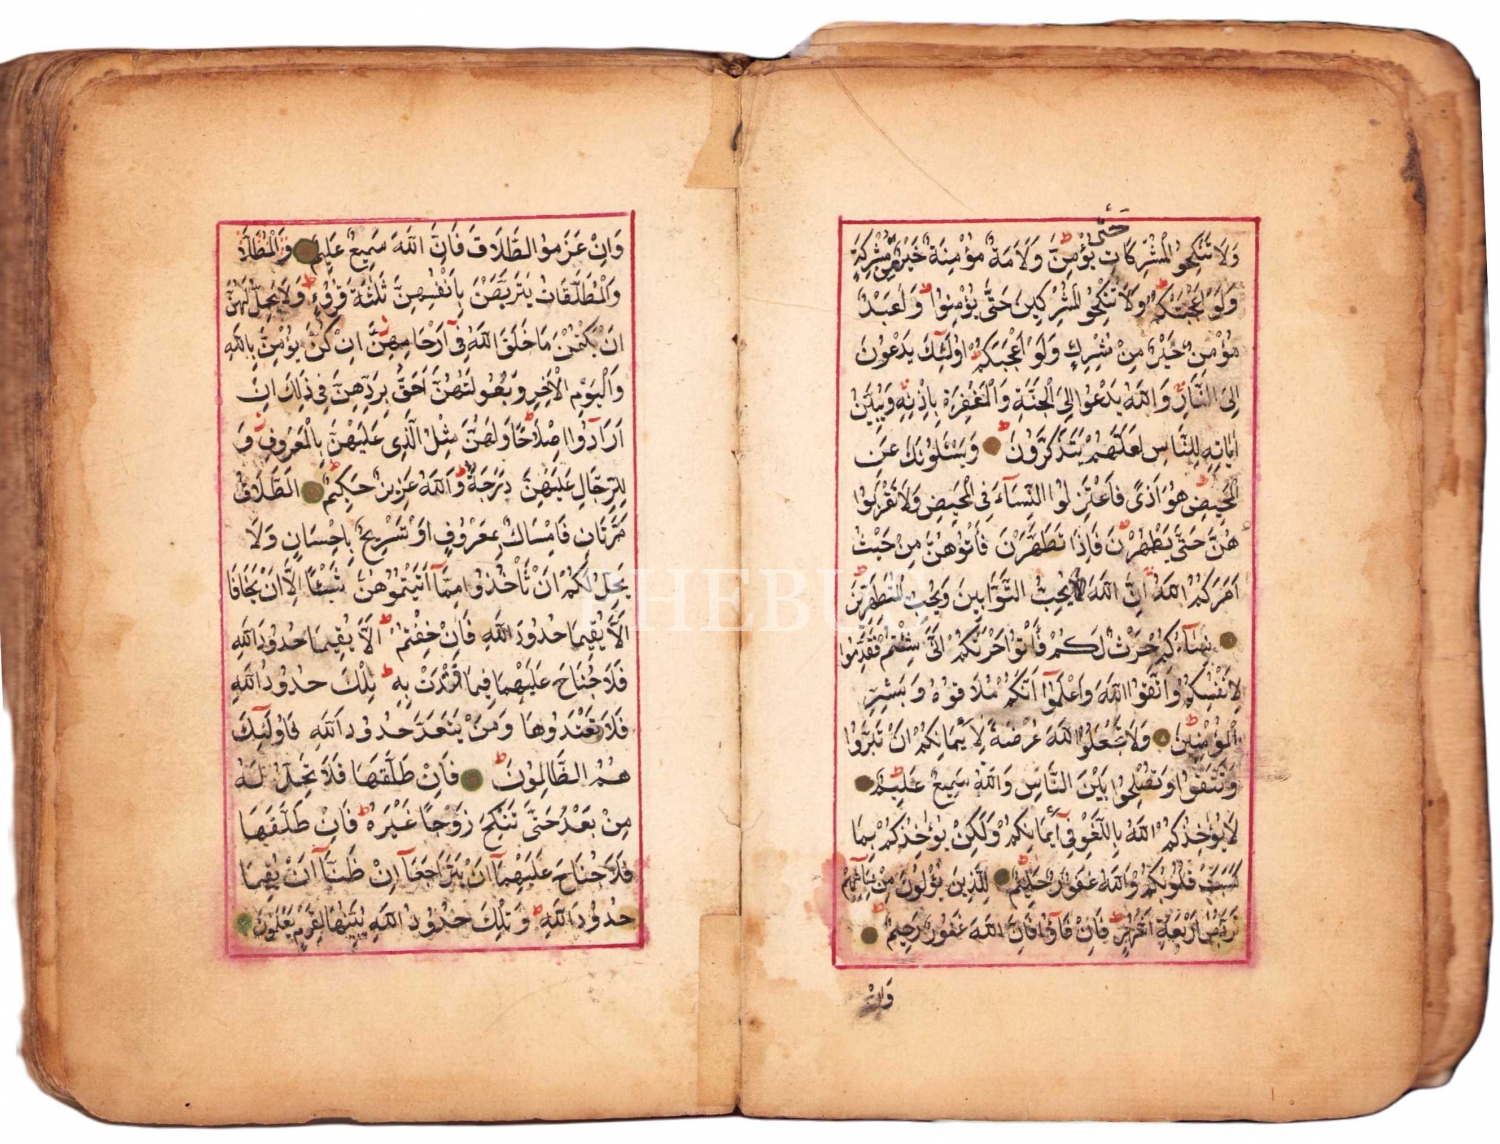 حَتّٰى
وَلَا تَنْكِحُوا الْمُشْرِكَاتِ يُؤْمِنَّ وَلَاَمَةٌ مُؤْمِنَةٌ خَيْرٌ مِنْ مُشْرِكَةٍ
وَلَوْ اَعْجَبَتْكُمْ وَلَا تُنْكِحُوا الْمُشْرِكِينَ حَتَّى يُؤْمِنُوا وَلَعَبْدٌ
مُؤْمِنٌ خَيْرٌ مِنْ مُشْرِكٍ وَلَوْ اَعْجَبَكُمْ اُولٰئِكَ يَدْعُونَ
اِلَى النَّارِ وَاللّٰهُ يَدْعُوا اِلَى الْجَنَّةِ وَالْمَغْفِرَةِ بِاِذْنِهِ وَيُبَيِّنُ
اٰيَاتِهِ لِلنَّاسِ لَعَلَّهُمْ يَتَذَكَّرُونَ وَيَسْئَلُونَكَ عَنِ
الْمَحِيضِ هُوَ اَذًى فَاعْتَزِلُوا النِّسَاءَ فِي الْمَحِيضِ وَلَا تَقْرَبُوا
هُنَّ حَتَّى يَطْهُرْنَ فَاِذَا تَطَهَّرْنَ فَأْتُوهُنَّ مِنْ حَيْثُ
اَمَرَكُمُ اللّٰهُ اِنَّ اللّٰهَ يُحِبُّ التَّوَّابِينَ وَيُحِبُّ الْمُتَطَهِّرِينَ
نِسَاؤُكُمْ حَرْثٌ لَكُمْ فَأْتُوا حَرْثَكُمْ اَنّٰى شِئْتُمْ فَقَدِّمُوا
لِاَنْفُسِكُمْ وَاتَّقُوا اللّٰهَ وَاعْلَمُوا اَنَّكُمْ مُلَاقُوهُ وَبَشِّرِ
الْمُؤْمِنِينَ وَلَا تَجْعَلُوا اللّٰهَ عُرْضَةً لِاَيْمَانِكُمْ اَنْ تَبَرُّوا
وَتَتَّقُوا وَتُصْلِحُوا بَيْنَ النَّاسِ وَاللّٰهُ سَمِيعٌ عَلِيمٌ
لَا يُؤَاخِذُكُمُ اللّٰهُ بِاللَّغْوِ فِي اَيْمَانِكُمْ وَلٰكِنْ يُؤَاخِذُكُمْ بِمَا
كَسَبَتْ قُلُوبُكُمْ وَاللّٰهُ غَفُورٌ حَلِيمٌ لِلَّذِينَ يُؤْلُونَ مِنْ نِسَائِهِمْ
تَرَبُّصُ اَرْبَعَةِ اَشْهُرٍ فَاِنْ فَاؤُا فَاِنَّ اللّٰهَ غَفُورٌ رَحِيمٌ
وَاِنْ
وَاِنْ عَزَمُوا الطَّلَاقَ فَاِنَّ اللّٰهَ سَمِيعٌ عَلِيمٌ وَالْمُطَلَّ
وَالْمُطَلَّقَاتُ يَتَرَبَّصْنَ بِاَنْفُسِهِنَّ ثَلٰثَةَ قُرُوءٍ وَلَا يَحِلُّ لَهُنَّ
اَنْ يَكْتُمْنَ مَا خَلَقَ اللّٰهُ فِي اَرْحَامِهِنَّ اِنْ كُنَّ يُؤْمِنَّ بِاللّٰهِ
وَالْيَوْمِ الْاٰخِرِ وَبُعُولَتُهُنَّ اَحَقُّ بِرَدِّهِنَّ فِي ذٰلِكَ اِنْ
اَرَادُوا اِصْلَاحًا وَلَهُنَّ مِثْلُ الَّذِي عَلَيْهِنَّ بِالْمَعْرُوفِ وَ
لِلرِّجَالِ عَلَيْهِنَّ دَرَجَةٌ وَاللّٰهُ عَزِيزٌ حَكِيمٌ الطَّلَاقُ
مَرَّتَانِ فَاِمْسَاكٌ بِمَعْرُوفٍ اَوْ تَسْرِيحٌ بِاِحْسَانٍ وَلَا
يَحِلُّ لَكُمْ اَنْ تَأْخُذُوا مِمَّا اٰتَيْتُمُوهُنَّ شَيْئًا اِلَّا اَنْ يَخَافَا
اَلَّا يُقِيمَا حُدُودَ اللّٰهِ فَاِنْ خِفْتُمْ اَلَّا يُقِيمَا حُدُودَ اللّٰهِ
فَلَا جُنَاحَ عَلَيْهِمَا فِيمَا افْتَدَتْ بِهِ تِلْكَ حُدُودُ اللّٰهِ
فَلَا تَعْتَدُوهَا وَمَنْ يَتَعَدَّ حُدُودَ اللّٰهِ فَاُولٰئِكَ
هُمُ الظَّالِمُونَ فَاِنْ طَلَّقَهَا فَلَا تَحِلُّ لَهُ
مِنْ بَعْدُ حَتَّى تَنْكِحَ زَوْجًا غَيْرَهُ فَاِنْ طَلَّقَهَا
فَلَا جُنَاحَ عَلَيْهِمَا اَنْ يَتَرَاجَعَا اِنْ ظَنَّا اَنْ يُقِيمَا
حُدُودَ اللّٰهِ وَتِلْكَ حُدُودُ اللّٰهِ يُبَيِّنُهَا لِقَوْمٍ يَعْلَمُونَ